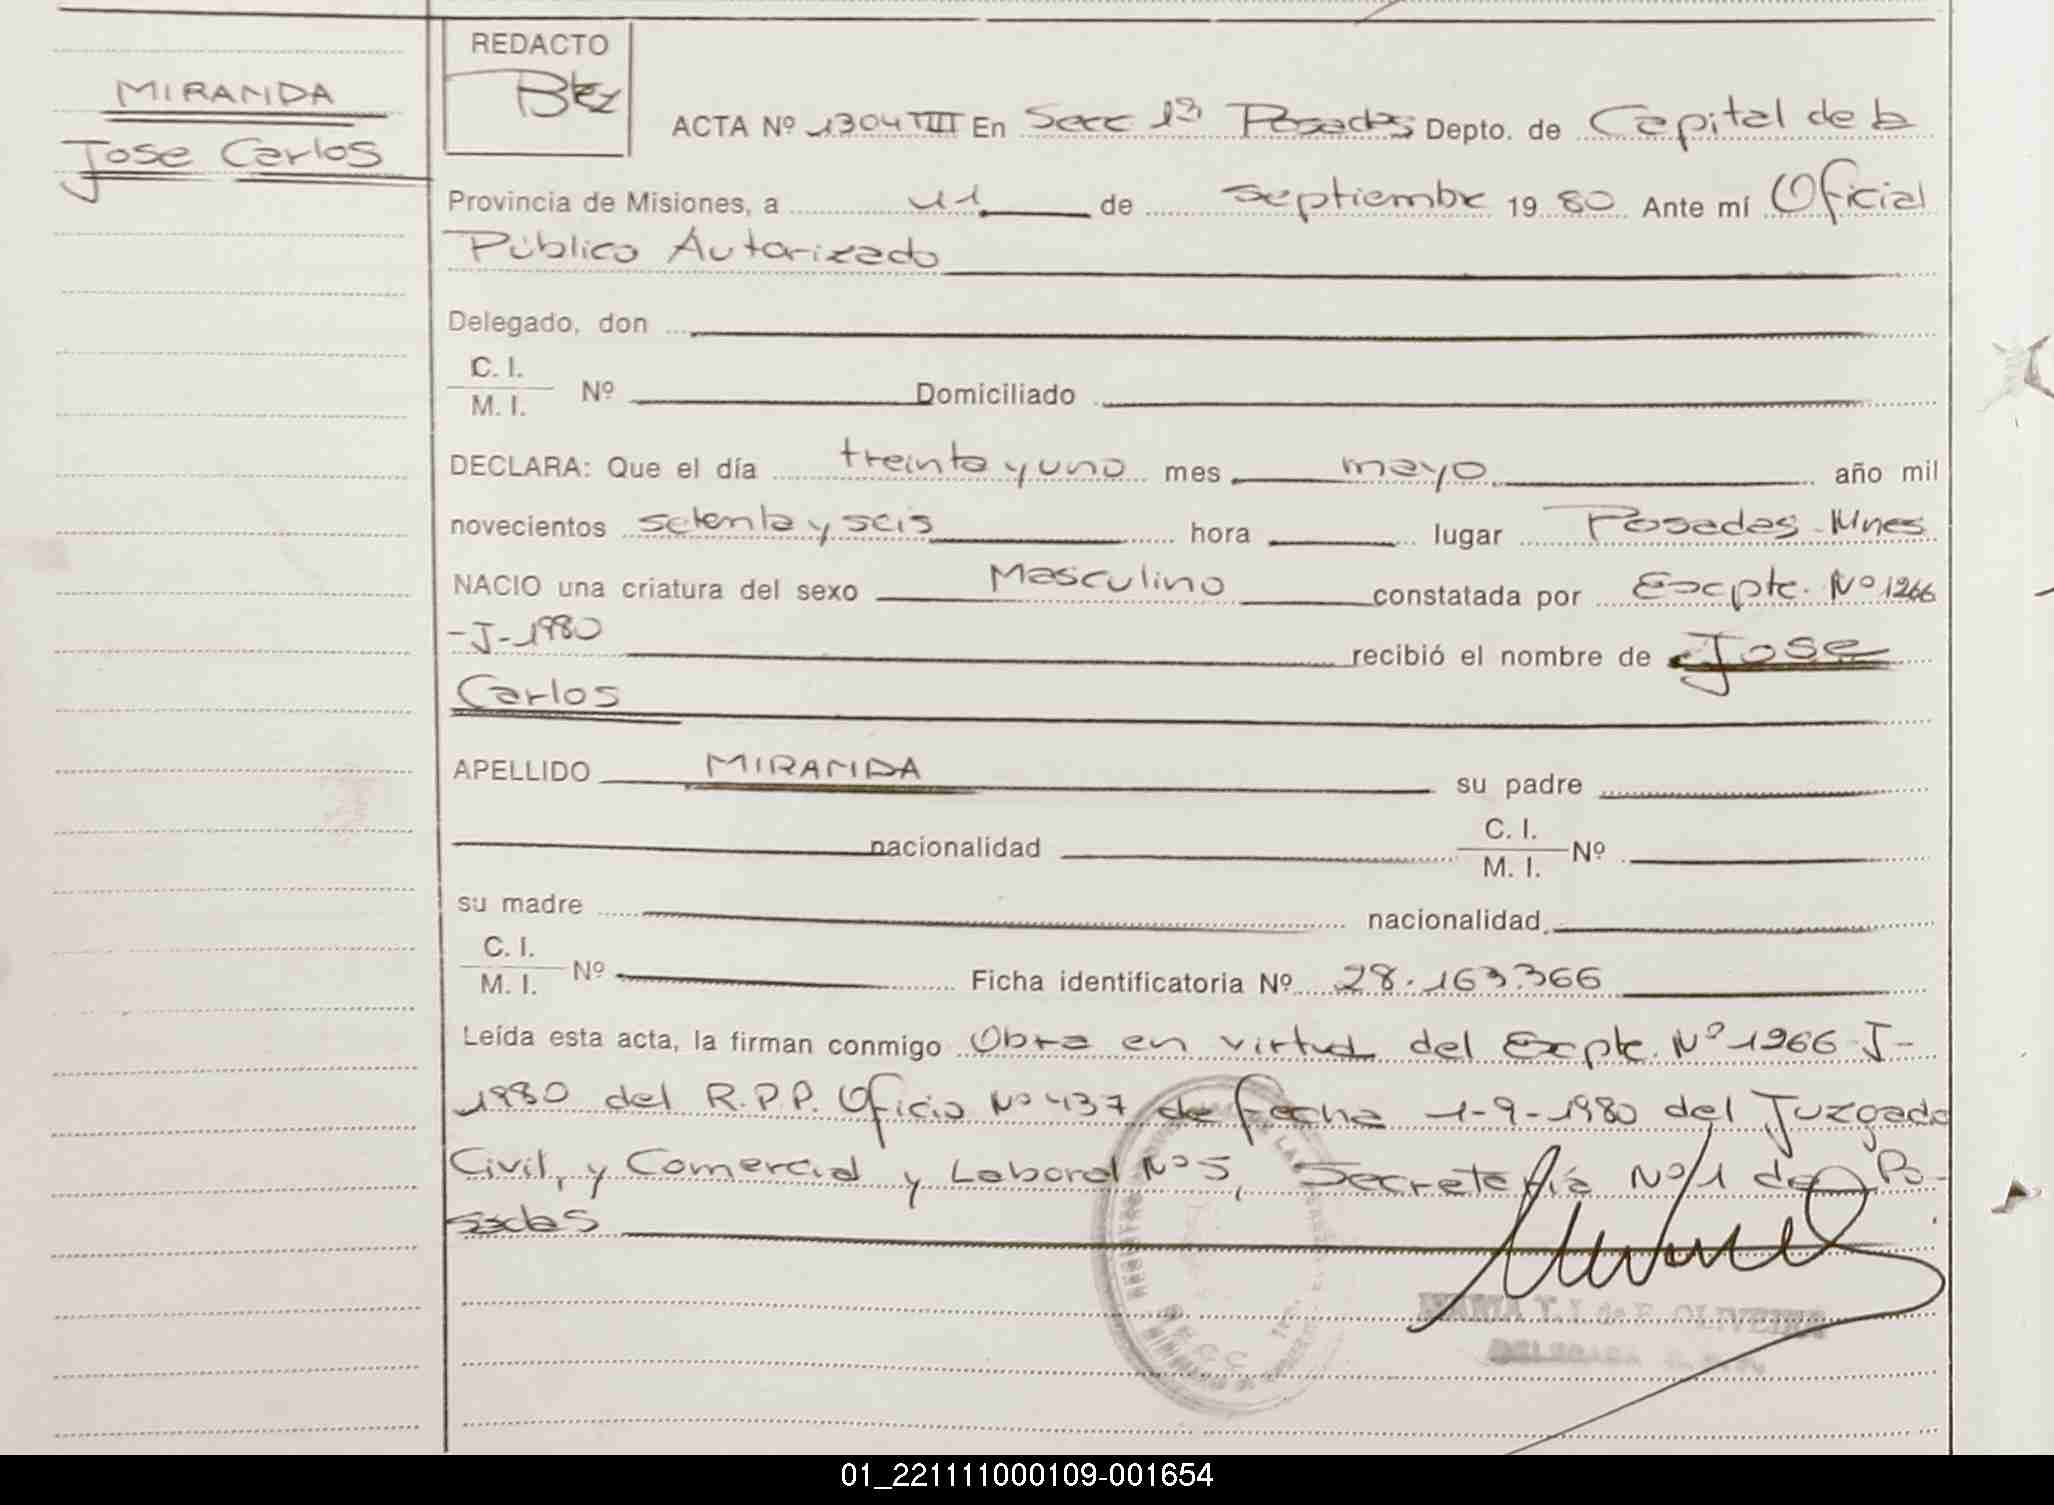 MIRANDA
Jose Carlos
REDACTO
ACTA Nº 1304 TIII En Secc 1ª Posadas Depto. de Capital de la
Provincia de Misiones, a 11 de septiembre 1980 Ante mí Oficial
Público Autorizado
Delegado, don
C. I.
M. I. Nº Domiciliado
DECLARA: Que el día treinta y uno mes mayo año mil
novecientos setenta y seis hora lugar Posadas Mnes
NACIO una criatura del sexo Masculino constatada por Excpte. Nº 1266
-J-1980 recibió el nombre de Jose
Carlos
APELLIDO MIRANDA su padre
nacionalidad C. I.
M. I. Nº
su madre nacionalidad
C. I.
M. I. Nº Ficha identificatoria Nº 28.163.366
Leída esta acta, la firman conmigo Obra en virtud del Excpte. Nº 1266-J-
1980 del R.P.P. Oficio Nº 437 de fecha 1-9-1980 del Juzgado
Civil, y Comercial y Laboral Nº 5, Secretaría Nº 1 de Po-
sadas
OLIVEIRA
01_221111000109-001654